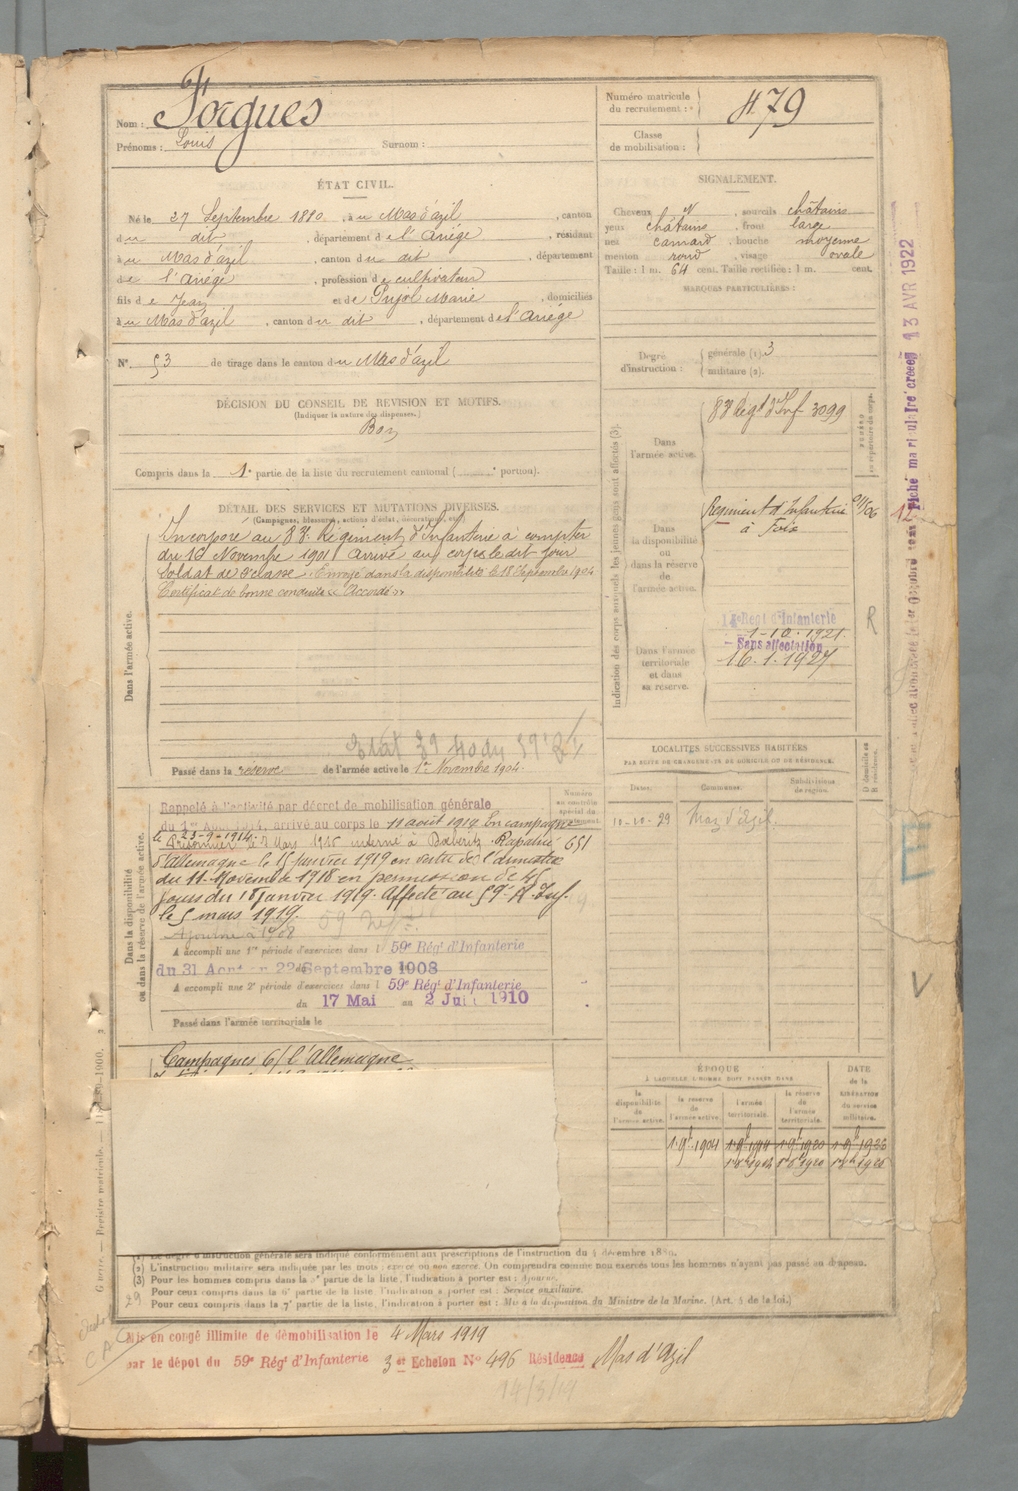 Nom : Forgues
Prénoms : Louis Surnom :
Numéro matricule du recrutement : 479
Classe de mobilisation :
ÉTAT CIVIL.
Né le 27 Septembre 1880, à u Mas d'azil, canton
du dit, département de l'Ariége, résidant
à u Mas d'azil, canton du dit, département
de l'Ariége, profession de cultivateur
fils de Jean et de Pujol Marie, domiciliés
à u Mas d'azil, canton du dit, département de l'Ariége
N° 53 de tirage dans le canton du Mas d'azil
DÉCISION DU CONSEIL DE REVISION ET MOTIFS.
(Indiquer la nature des dispenses.)
Bon
Compris dans la 1e partie de la liste du recrutement cantonal ( e portion).
SIGNALEMENT.
Cheveux , sourcils châtains
yeux châtains, front large
nez camard, bouche moyenne
menton rond, visage ovale
Taille : 1 m. 64 cent. Taille rectifiée : 1 m. cent.
MARQUES PARTICULIÈRES :
Degré d'instruction : générale (1). 3
militaire (2).
DÉTAIL DES SERVICES ET MUTATIONS DIVERSES.
(Campagnes, blessures, actions d'éclat, décorations, etc.)
Dans l'armée active.
Incorporé au 83e Régiment d'Infanterie à compter
du 16 Novembre 1901 arrivé au corps le dit jour
Soldat de 2e classe. Envoyé dans la disponibilité le 18 Septembre 1904
Certificat de bonne conduite « Accordé »
Passé dans la réserve de l'armée active le 1er Novembre 1904.
Indication des corps auxquels les jeunes gens sont affectés (3).
Dans l'armée active.
83e Régt d'Inf 3099
NUMÉRO au répertoire du corps.
Dans la disponibilité ou dans la réserve de l'armée active.
Régiment d'Infanterie
à Foix
Dans l'armée territoriale et dans sa réserve.
Régt d'Infanterie
1-10-1921
Sans affectation
16.1.1927
R
13 AVR 1922
Dans la disponibilité ou dans la réserve de l'armée active.
Numéro au contrôle spécial du recrutement.
Rappelé à l'activité par décret de mobilisation générale
du 1er Août 1914, arrivé au corps le 11 août 1914 En campagne
le 23-9-1914
Prisonnier interné à Rapatrié 651
d'Allemagne le 15 janvier 1919 en vertu de l'armistice
du 11 Novembre 1918 en permission de 45
jours du janvier 1919. Affecté au 59e R. Inf.
le 5 mars 1919.
Ajourné à 1908
A accompli une 1re période d'exercices dans l 59e Régt d'Infanterie
du 31 Août au 22 Septembre 1908
A accompli une 2e période d'exercices dans l 59e Régt d'Infanterie
du 17 Mai au 2 Juin 1910
Passé dans l'armée territoriale le
LOCALITÉS SUCCESSIVES HABITÉES
PAR SUITE DE CHANGEMENTS DE DOMICILE OU DE RÉSIDENCE.
Dates. Communes. Subdivisions de région. D domicile ou R résidence.
10-10-29 Mas d'Azil.
V
Campagnes c/ l'Allemagne
ÉPOQUE
À LAQUELLE L'HOMME DOIT PASSER DANS
la disponibilité de l'armée active. la réserve de l'armée active. l'armée territoriale. la réserve de l'armée territoriale.
DATE de la LIBÉRATION du service militaire.
(1) Le degré d'instruction générale sera indiqué conformément aux prescriptions de l'instruction du 4 décembre 1889.
(2) L'instruction militaire sera indiquée par les mots : exercé ou non exercé. On comprendra comme non exercés tous les hommes n'ayant pas passé au drapeau.
(3) Pour les hommes compris dans la 5e partie de la liste, l'indication à porter est : Ajourné.
Pour ceux compris dans la 6e partie de la liste, l'indication à porter est : Service auxiliaire.
Pour ceux compris dans la 7e partie de la liste, l'indication à porter est : Mis à la disposition du Ministre de la Marine. (Art. 4 de la loi.)
29
Mis en congé illimité de démobilisation le 4 Mars 1919
par le dépôt du 59e Régt d'Infanterie 3e Echelon N° 496 Résidence Mas d'Azil
14/3/19